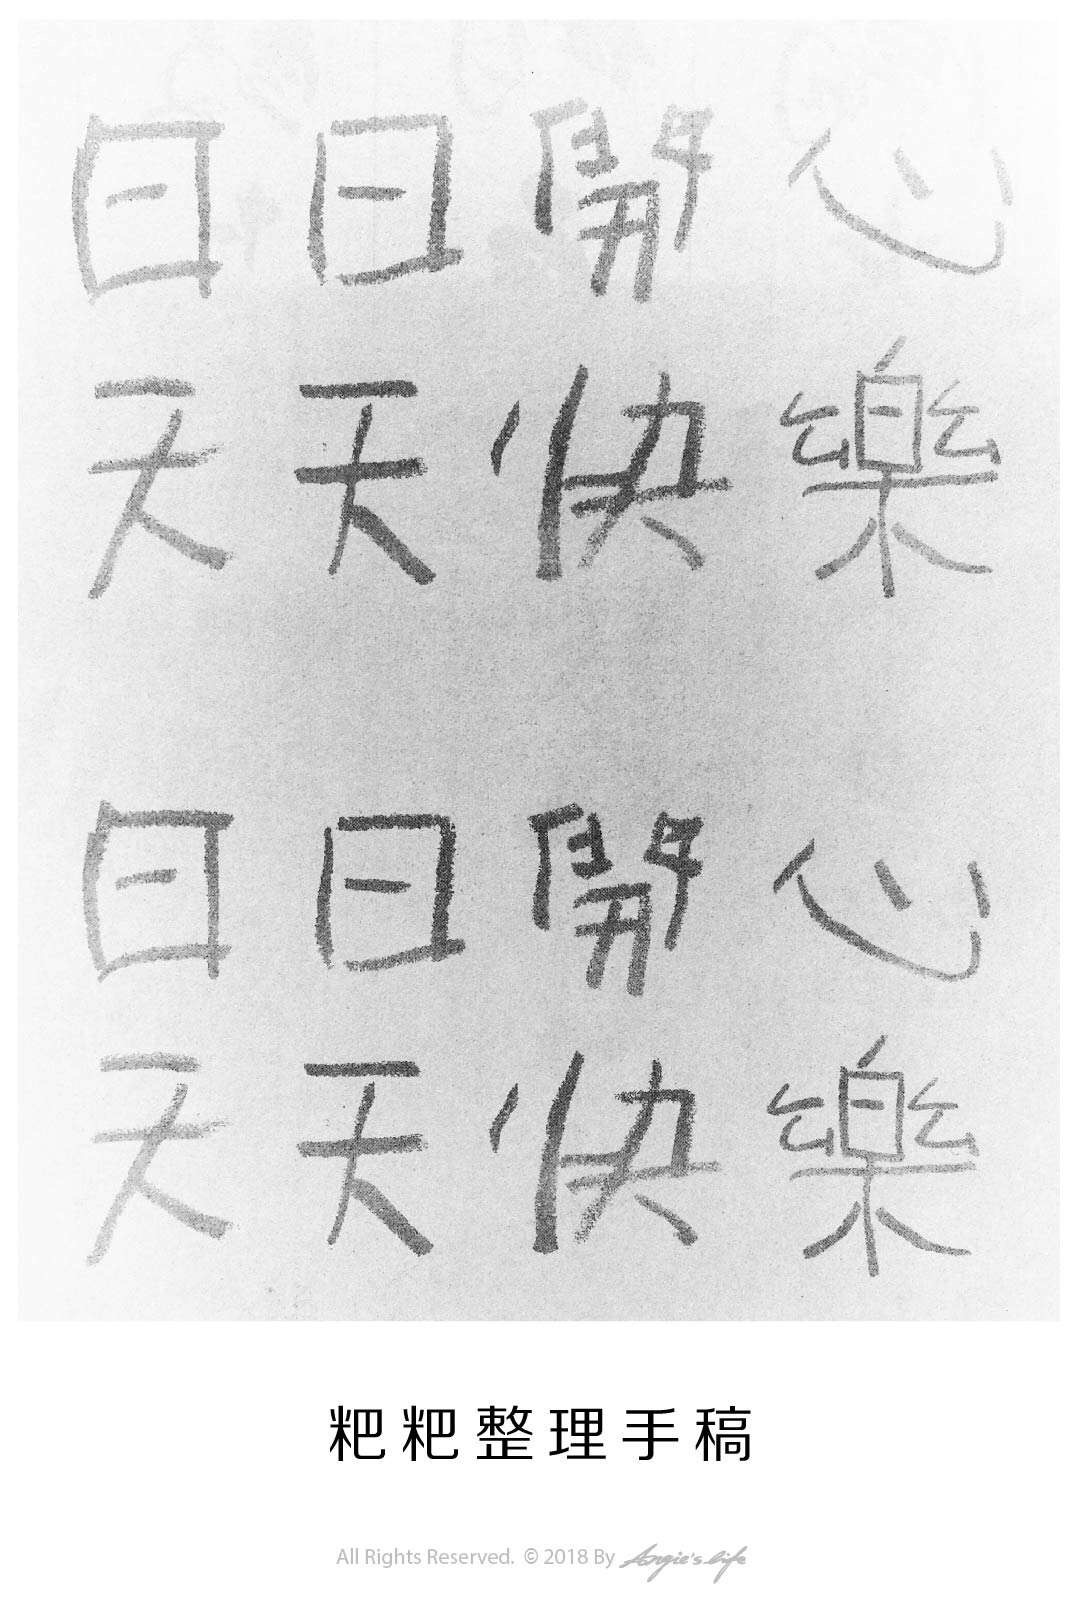 日日開心
天天快樂
日日開心
天天快樂
粑粑整理手稿
All Rights Reserved. © 2018 By Angie's life